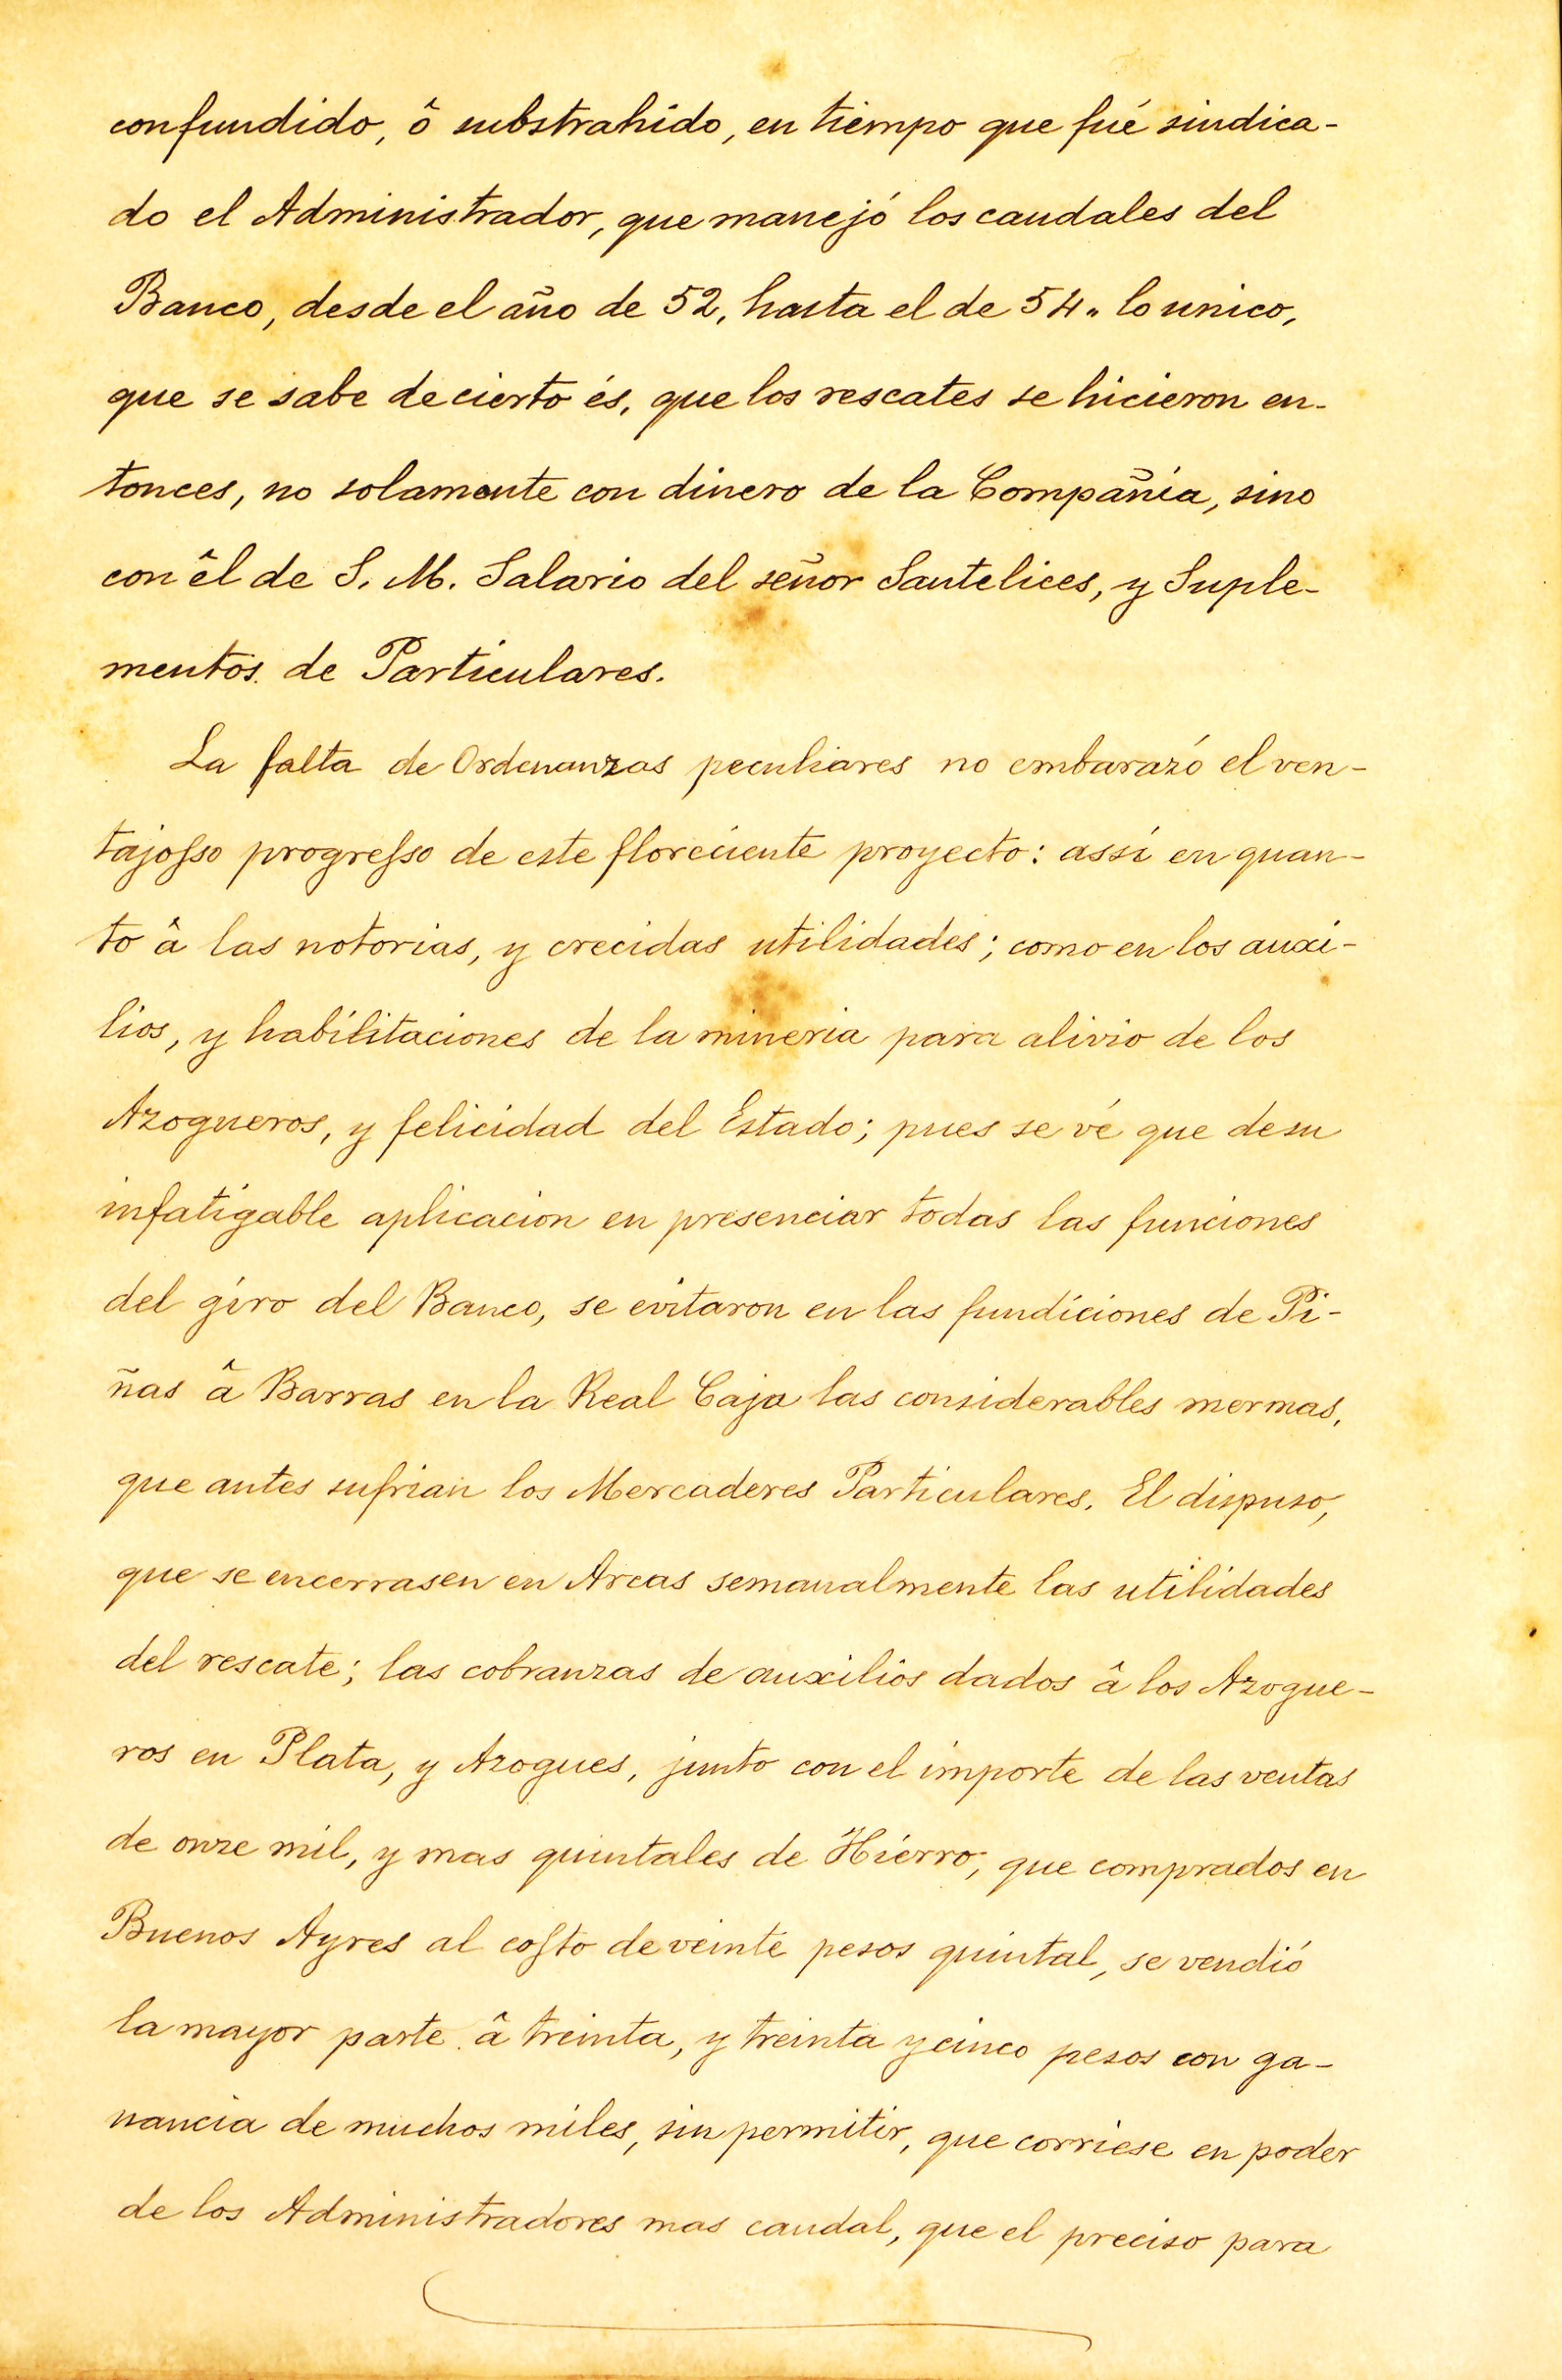 confundido, ô substrahido, en tiempo que fué sindica-
do el Administrador, que manejó los caudales del
Banco, desde el año de 52, hasta el de 54„ lo unico,
que se sabe de cierto és, que los rescates se hicieron en-
tonces, no solamente con dinero de la Compañia, sino
con êl de S. M. Salario del señor Santelices, y Suple-
mentos de Particulares.
La falta de Ordenanzas peculiares no embarazó el ven-
tajosso progresso de este floreciente proyecto: assí en quan-
to â las notorias, y crecidas utilidades; como en los auxi-
lios, y habilitaciones de la mineria para alivio de los
Azogueros, y felicidad del Estado; pues se vé que de su
infatigable aplicacion en presenciar todas las funciones
del giro del Banco, se evitaron en las fundiciones de Pi-
ñas â Barras en la Real Caja las considerables mermas,
que antes sufrian los Mercaderes Particulares. El dispuso,
que se encerrasen en Arcas semanalmente las utilidades
del rescate; las cobranzas de auxilios dados â los Azogue-
ros en Plata, y Azogues, junto con el importe de las ventas
de onze mil, y mas quintales de Hierro, que comprados en
Buenos Ayres al costo de veinte pesos quintal, se vendió
la mayor parte â treinta, y treinta y cinco pesos con ga-
nancia de muchos miles, sin permitir, que corriese en poder
de los Administradores mas caudal, que el preciso para